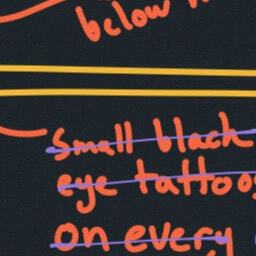 below
Small black
eye tattoos
on every